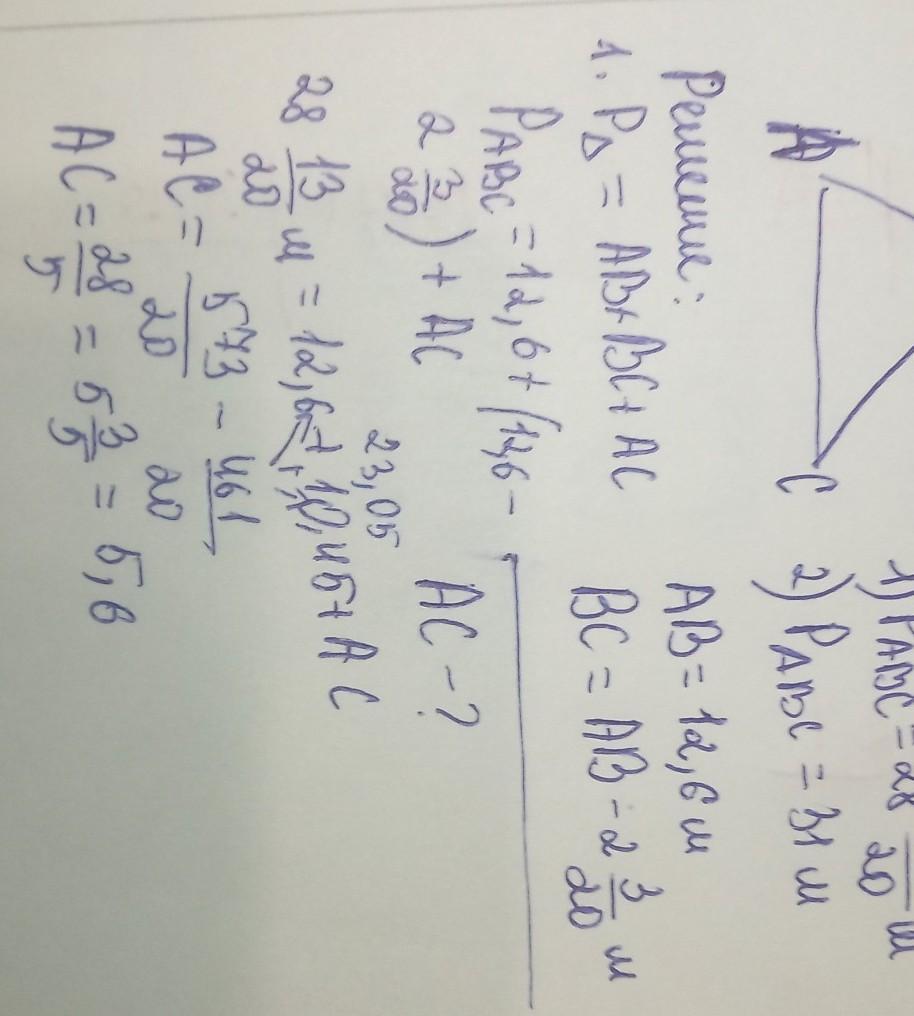 1) P ABC = 28 —/20 м
2) P ABC = 31 м
A
C
AB = 12,6 м
BC = AB - 2 3/20 м
AC - ?
Решение:
1. P△ = AB + BC + AC
P ABC = 12,6 + (12,6 -
2 3/20) + AC
23,05
28 13/20 м = 12,6 + 10,45 + AC
AC = 573/20 - 461/20
AC = 28/5 = 5 3/5 = 5,6